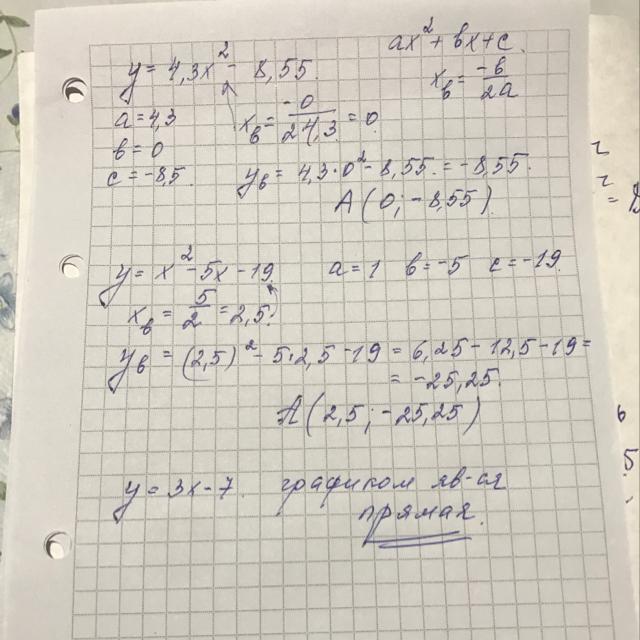 ax² + bx + c.
y = 4,3x² - 8,55.
x_в = -в/2a
a = 4,3
x_в = -0/2·4,3 = 0.
в = 0
c = -8,5.
y_в = 4,3·0² - 8,55. = -8,55.
A (0; -8,55).
y = x² - 5x - 19
a = 1 в = -5 c = -19.
x_в = 5/2 = 2,5.
y_в = (2,5)² - 5·2,5 - 19 = 6,25 - 12,5 - 19 =
= -25,25.
A (2,5; -25,25)
y = 3x - 7. графиком яв-ся
прямая.